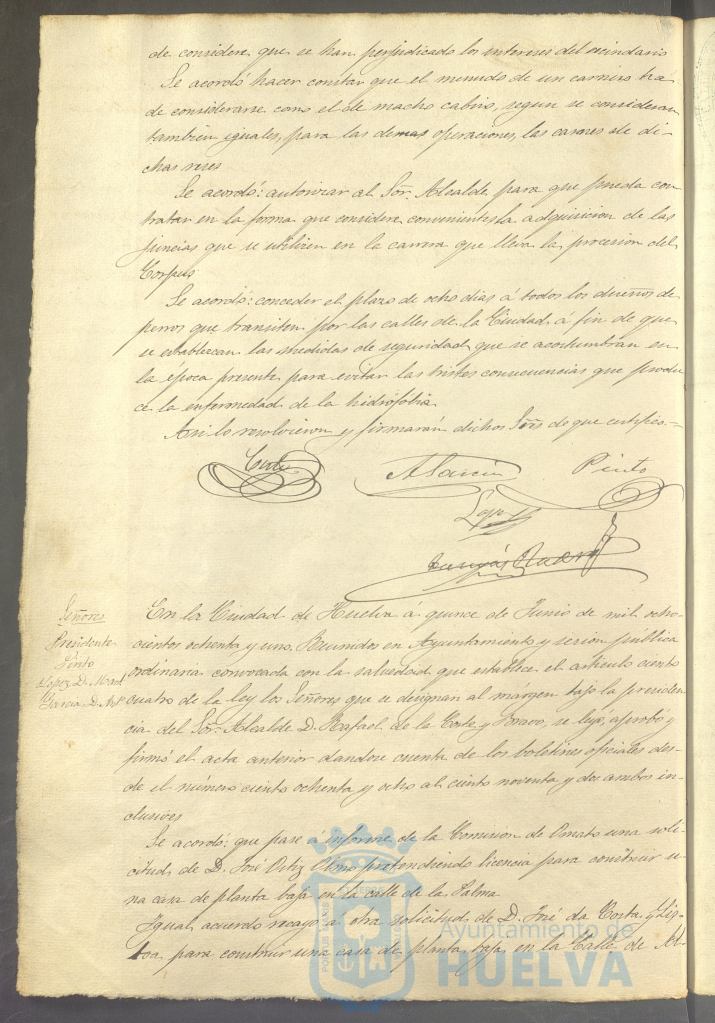 de considere que se han perjudicado los intereses del vecindario
Se acordó hacer constar que el menudo de un carnero ha
de considerarse como el de macho cabrio, segun se consideran
tambien iguales, para las demas operaciones, las carnes de di-
chas reses
Se acordó: autorizar al Sor. Alcalde para que pueda con
tratar en la forma que considere conveniente la adquisicion de las
juncias que se utilizen en la carrera que lleva la procesion del
Corpus
Se acordó: conceder el plazo de ocho dias á todos los dueños de
perros que transiten por las calles de la Ciudad, á fin de que
se establezcan las medidas de seguridad que se acostumbran en
la época presente para evitar las tristes consecuencias que produ
ce la enfermedad de la hidrofobia
Asi lo resolvieron y firmarán dichos Sres. de que certifico.=
Corte Garcia Pinto
Lopez
Señores
Presidente
Pinto
Lopez D.
Garcia D.
En la Ciudad de Huelva á quince de Junio de mil ocho-
cientos ochenta y uno. Reunidos en Ayuntamiento y sesion publica
ordinaria convocada con la salvedad que establece el artículo ciento
cuatro de la ley los Señores que se designan al margen bajo la presiden
cia del Sor. Alcalde D. Rafael de la Corte y Bravo, se leyó, aprobó y
firmó el acta anterior dandose cuenta de los boletines oficiales des-
de el número ciento ochenta y ocho al ciento noventa y dos ambos in-
clusives
Se acordó: que pase á informe de la Comision de Ornato una soli-
citud de D. José Ortiz Olmo pretendiendo licencia para construir u-
na casa de planta baja en la calle de la Palma
Igual acuerdo recayó á otra solicitud de D. José da Costa y
para construir una casa de planta baja en la Calle de
Ayuntamiento de
HUELVA